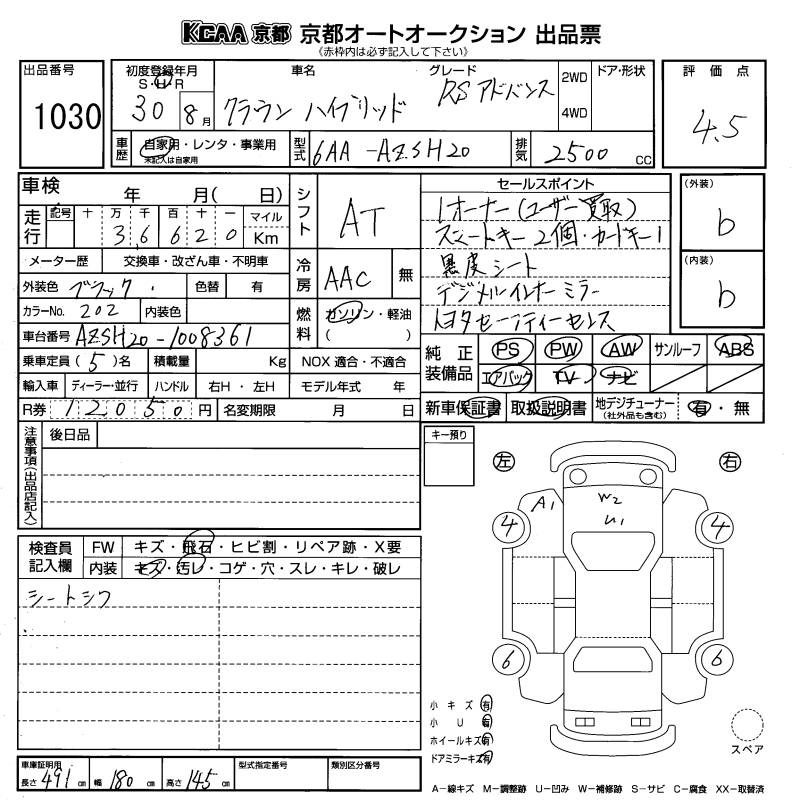 KCAA 京都 京都オートオークション 出品票
《赤枠内は必ず記入して下さい》
出品番号 1030
初度登録年月 S・H・R 30 8月
車名 クラウン ハイブリッド
グレード RSアドバンス
2WD 4WD
ドア・形状
評価点 4.5
車歴 自家用・レンタ・事業用
未記入は自家用
型式 6AA-AZSH20
排気 2500 CC
車検 年 月( 日)
走行 記号 十 万 千 百 十 一 マイル
3 6 6 2 0 Km
メーター歴 交換車・改ざん車・不明車
外装色 ブラック 色替 有
カラーNo. 202 内装色
車台番号 AZSH20-1008361
乗車定員 (5)名 積載量 Kg
輸入車 ディーラー・並行 ハンドル 右H・左H
R券 12050円 名変期限 月 日
シフト AT
冷房 AAC 無
燃料 ガソリン・軽油
( )
NOX 適合・不適合
モデル年式 年
セールスポイント
1オーナー(ユーザー買取)
スマートキー2個・カードキー1
黒皮シート
デジタルインナーミラー
トヨタセーフティーセンス
(外装) b
(内装) b
純正装備品 PS PW AW サンルーフ ABS
エアバッグ TV ナビ
新車保証書 取扱説明書 地デジチューナー (社外品も含む) 有・無
注意事項(出品店記入)
後日品
キー預り
左 右
A1 W2
U1
4 4
6 6
検査員記入欄
FW キズ・飛石・ヒビ割・リペア跡・X要
内装 キズ・汚レ・コゲ・穴・スレ・キレ・破レ
シートシワ
小キズ 有
小U 有
ホイールキズ 有
ドアミラーキズ 有
スペア
車庫証明用
長さ 491cm 幅 180cm 高さ 145cm
型式指定番号 類別区分番号
A−線キズ M−調整跡 U−凹み W−補修跡 S−サビ C−腐食 XX−取替済